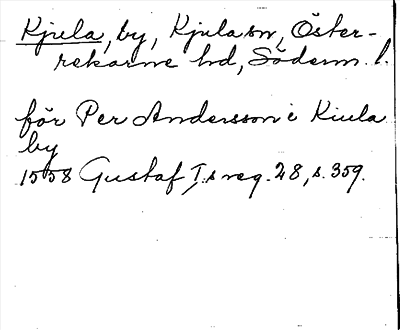 Kjula, by, Kjula sn, Öster-
rekarne hd, Söderm. l.
för Per Andersson i Kiula
by
1558 Gustaf I:s reg. 28, s. 359.